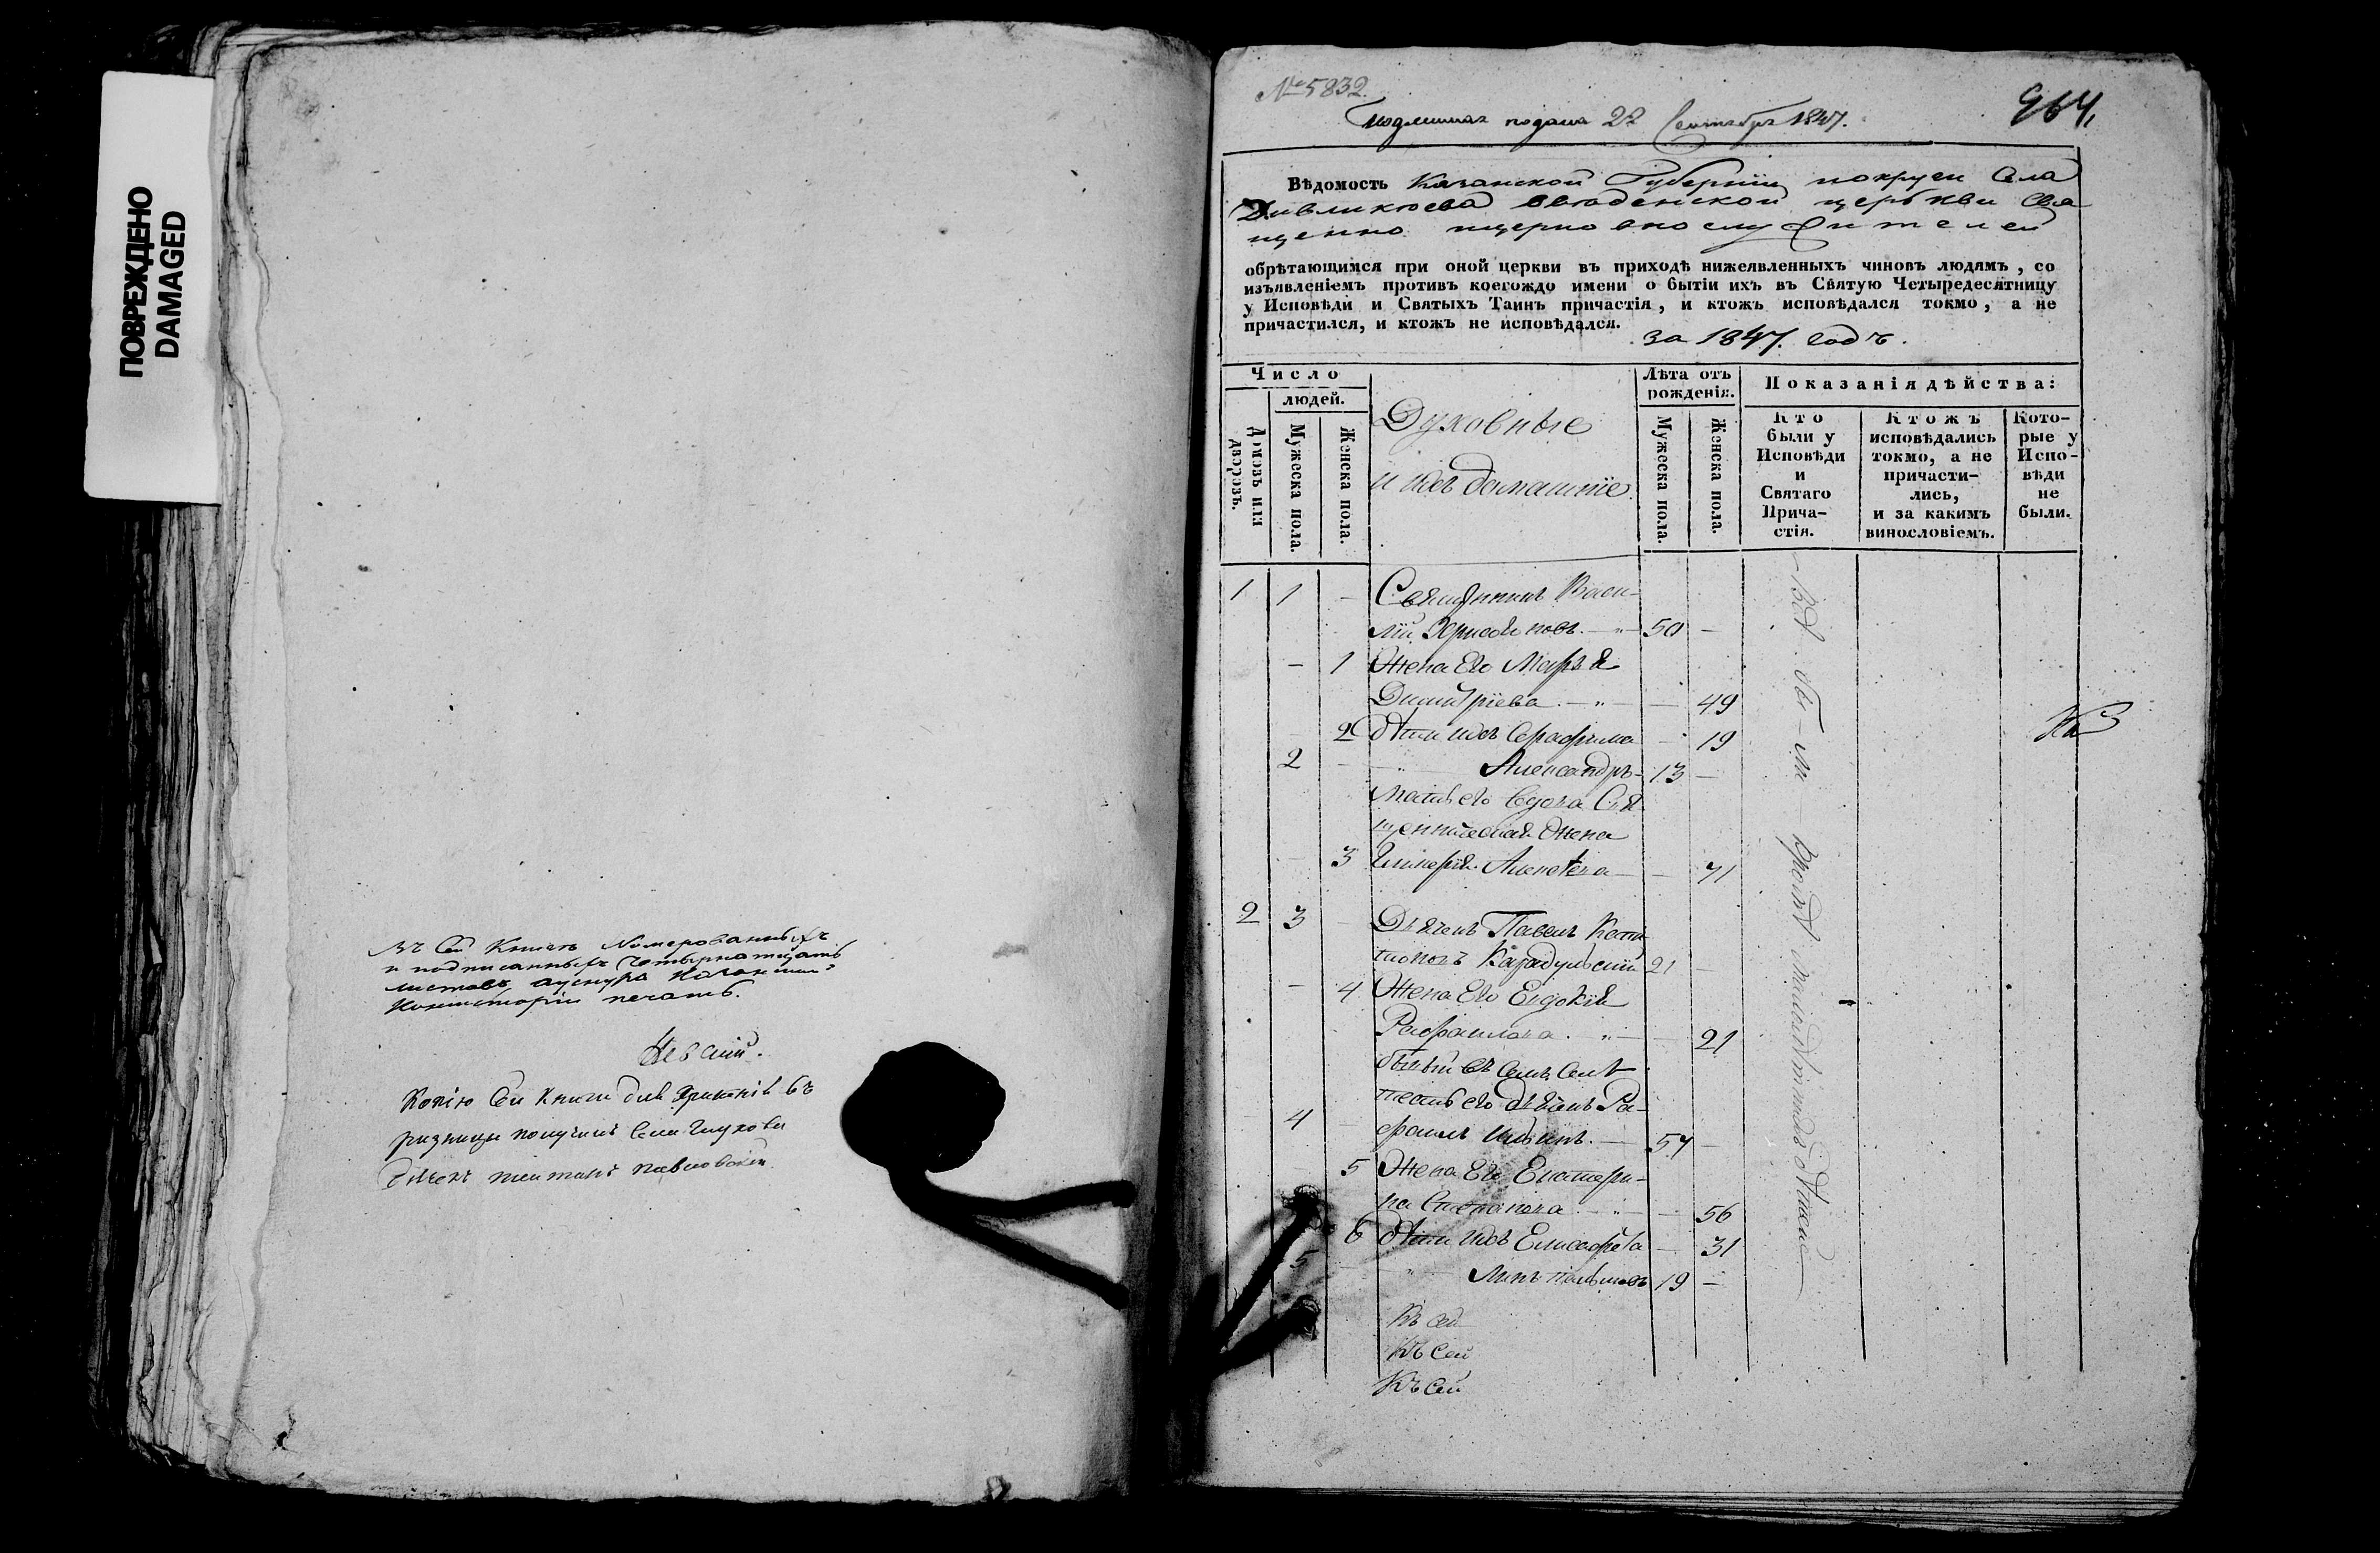 ПОВРЕЖДЕНО
DAMAGED
Въ сей Книгѣ Нумерованныхъ
и подписанныхъ Четырнатцать
листовъ
Консисторіи печать.
Невскій.
Копію сей книги для храненія въ
ризницы получилъ села
№ 5832.
Подлинная подана 22 Сентября 1847.
964.
Вѣдомость Казанской Губерніи округи Села
церькви Свя
щенно ицерковнослужителей
обрѣтающимся при оной церкви въ приходѣ нижеявленныхъ чиновъ людямъ, со
изъявленіемъ противъ коегождо имени о бытіи ихъ въ Святую Четыредесятницу
у Исповѣди и Святыхъ Таинъ причастія, и ктожъ исповѣдался токмо, а не
причастился, и ктожъ не исповѣдался.
за 1847. годъ.
Число
людей.
Домовъ или дворовъ.
Мужеска пола.
Женска пола.
Духовные
и ихъ домашніе
Лѣта отъ рожденія.
Мужеска пола.
Женска пола.
Показанія дѣйства:
Кто были у Исповѣди и Святаго Причастія.
Ктожъ исповѣдались токмо, а не причастились, и за какимъ винословіемъ.
Которые у Исповѣди не были.
1 1 — Священникъ Васи-
лій — 50 —
— 1 Жена Его Марья
Димитріева — 49
2 дѣти ихъ Серафима — 19
2 — Александръ 13 —
Мать его вдова Свя
щенническая Жена
3 Гликерія Алексѣева — 71
2 3 — Дьяконъ Павелъ
21 —
— 4 Жена Его Евдокія
Рафаилова — 21
тесть его дьяконъ Ра-
4 фаилъ 57 —
5 Жена Его Екатери-
на Степанова — 56
6 дѣти ихъ Елисавета — 31
5 19 —
Къ сей
Къ сей
Къ сей